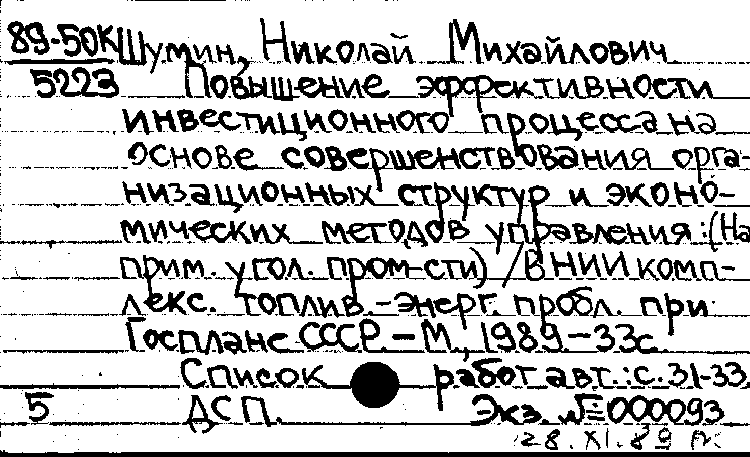 89-50К Шумин, Николай Михайлович
5223 Повышение эффективности
инвестиционного процесса на
основе совершенствования орга-
низационных структур и эконо-
мических методов управления: (На
прим. угол. пром-сти) / ВНИИ комп-
лекс. топлив.-энерг. пробл. при
Госплане СССР. - М., 1989. - 33с.
Список работ авт.: с. 31-33
5 ДСП. Экз. №000093
28.XI.89